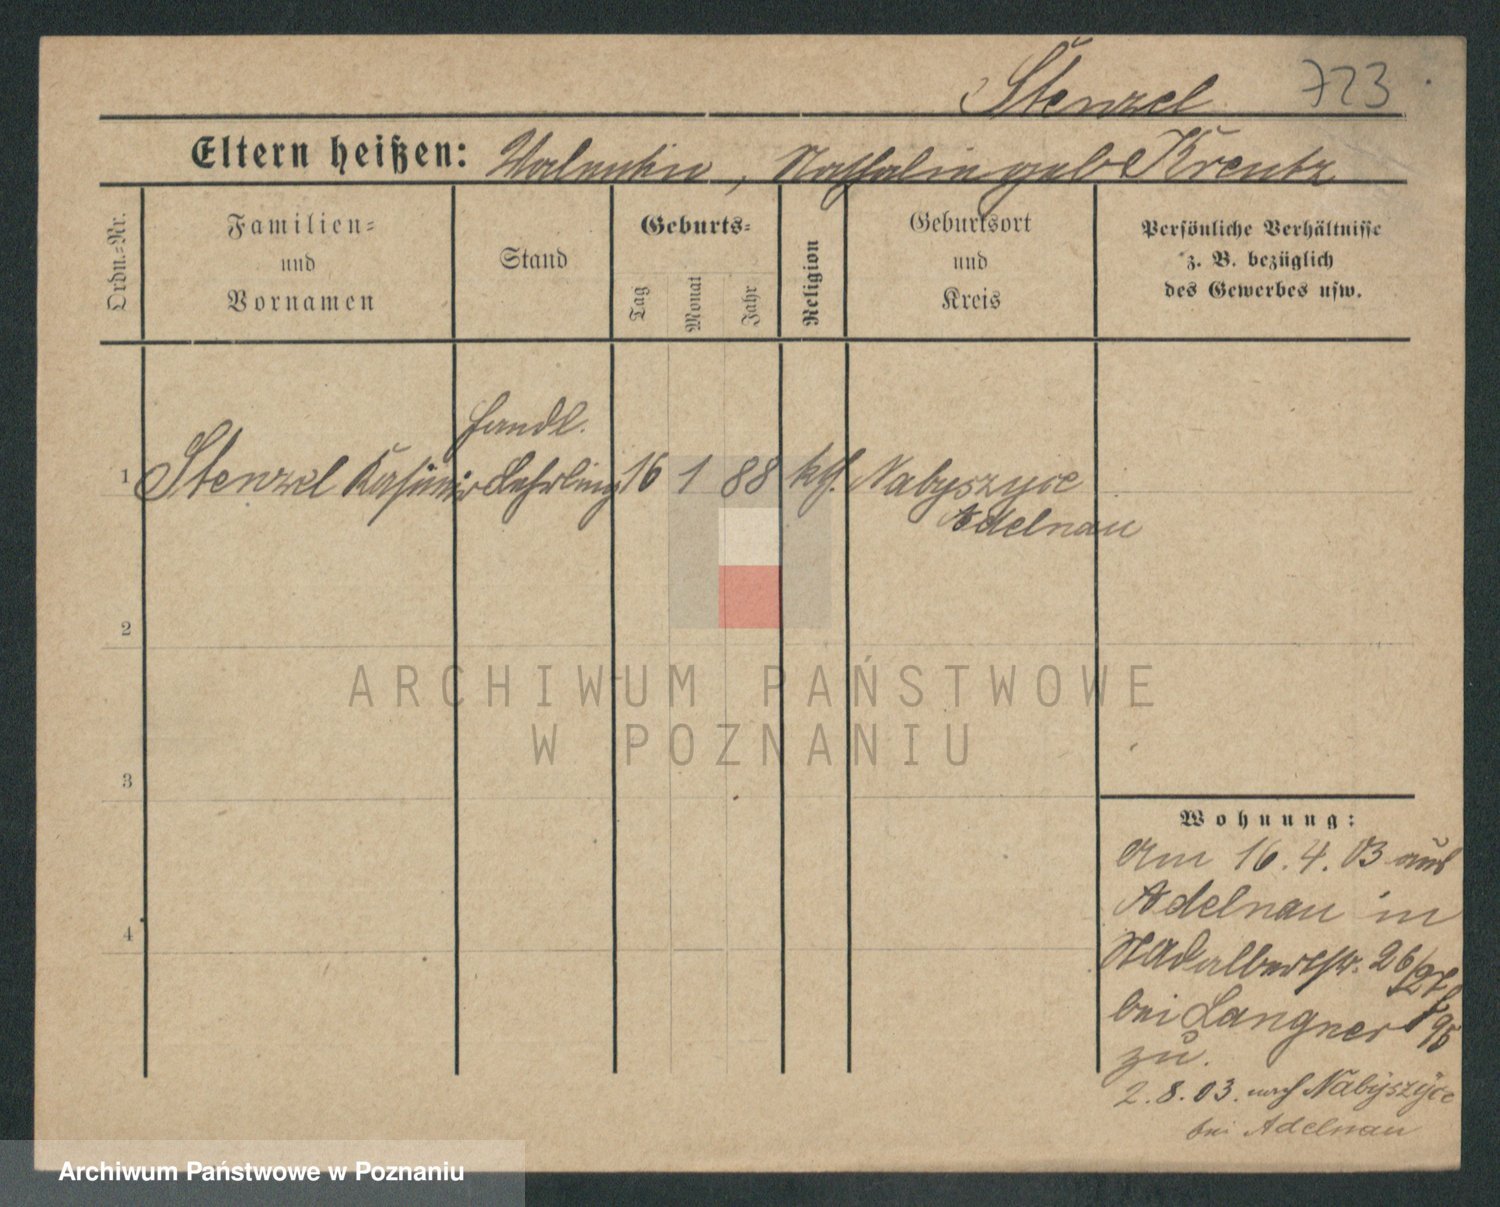 Stenzel 723
Eltern heißen: Valentin, Nathalie geb. Kreutz
Ordn.-Nr.
Familien-
und
Vornamen
Stand
Geburts-
Tag
Monat
Jahr
Religion
Geburtsort
und
Kreis
Persönliche Verhältnisse
z. B. bezüglich
des Gewerbes usw.
Handl.
1 Stenzel Kasimir Lehrling 16 1 88 kth. Nabyszyce
Adelnau
2
3
4
ARCHIWUM PAŃSTWOWE
W POZNANIU
Wohnung:
Am 16.4.03 aus
Adelnau in
Adalbertstr. 26/27
bei Langner
zu.
2.8.03. nach Nabyszyce
bei Adelnau
Archiwum Państwowe w Poznaniu